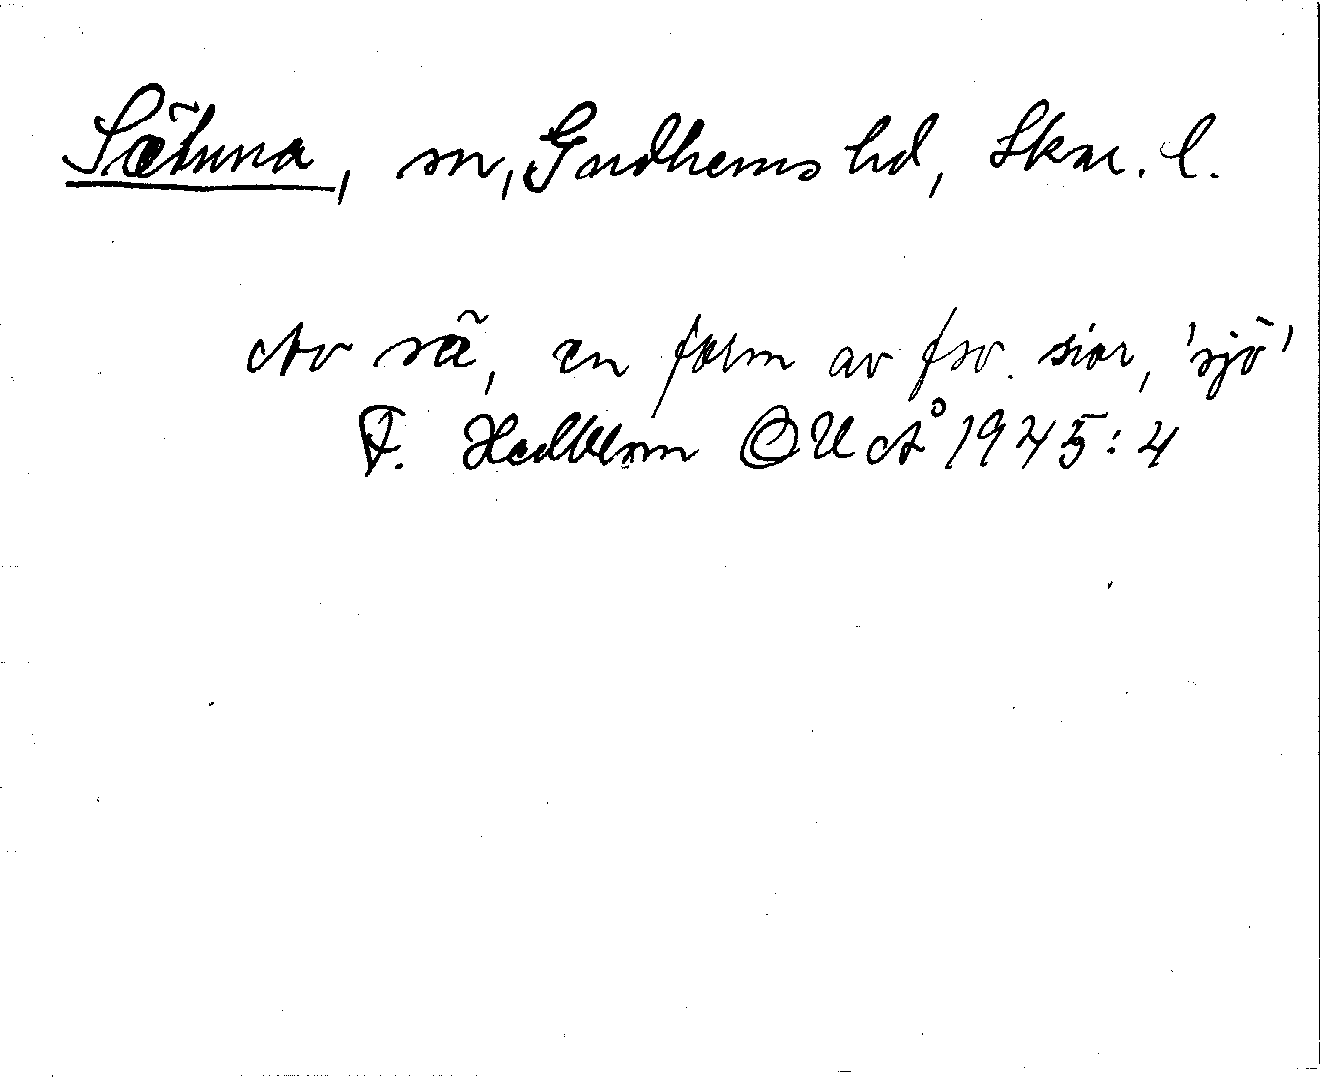 Sätuna, sn, Gudhems hd, Skar. l.
Av sä, en form av fsv. siar, 'sjö'
F. Hedblom OUÅ 1945:4